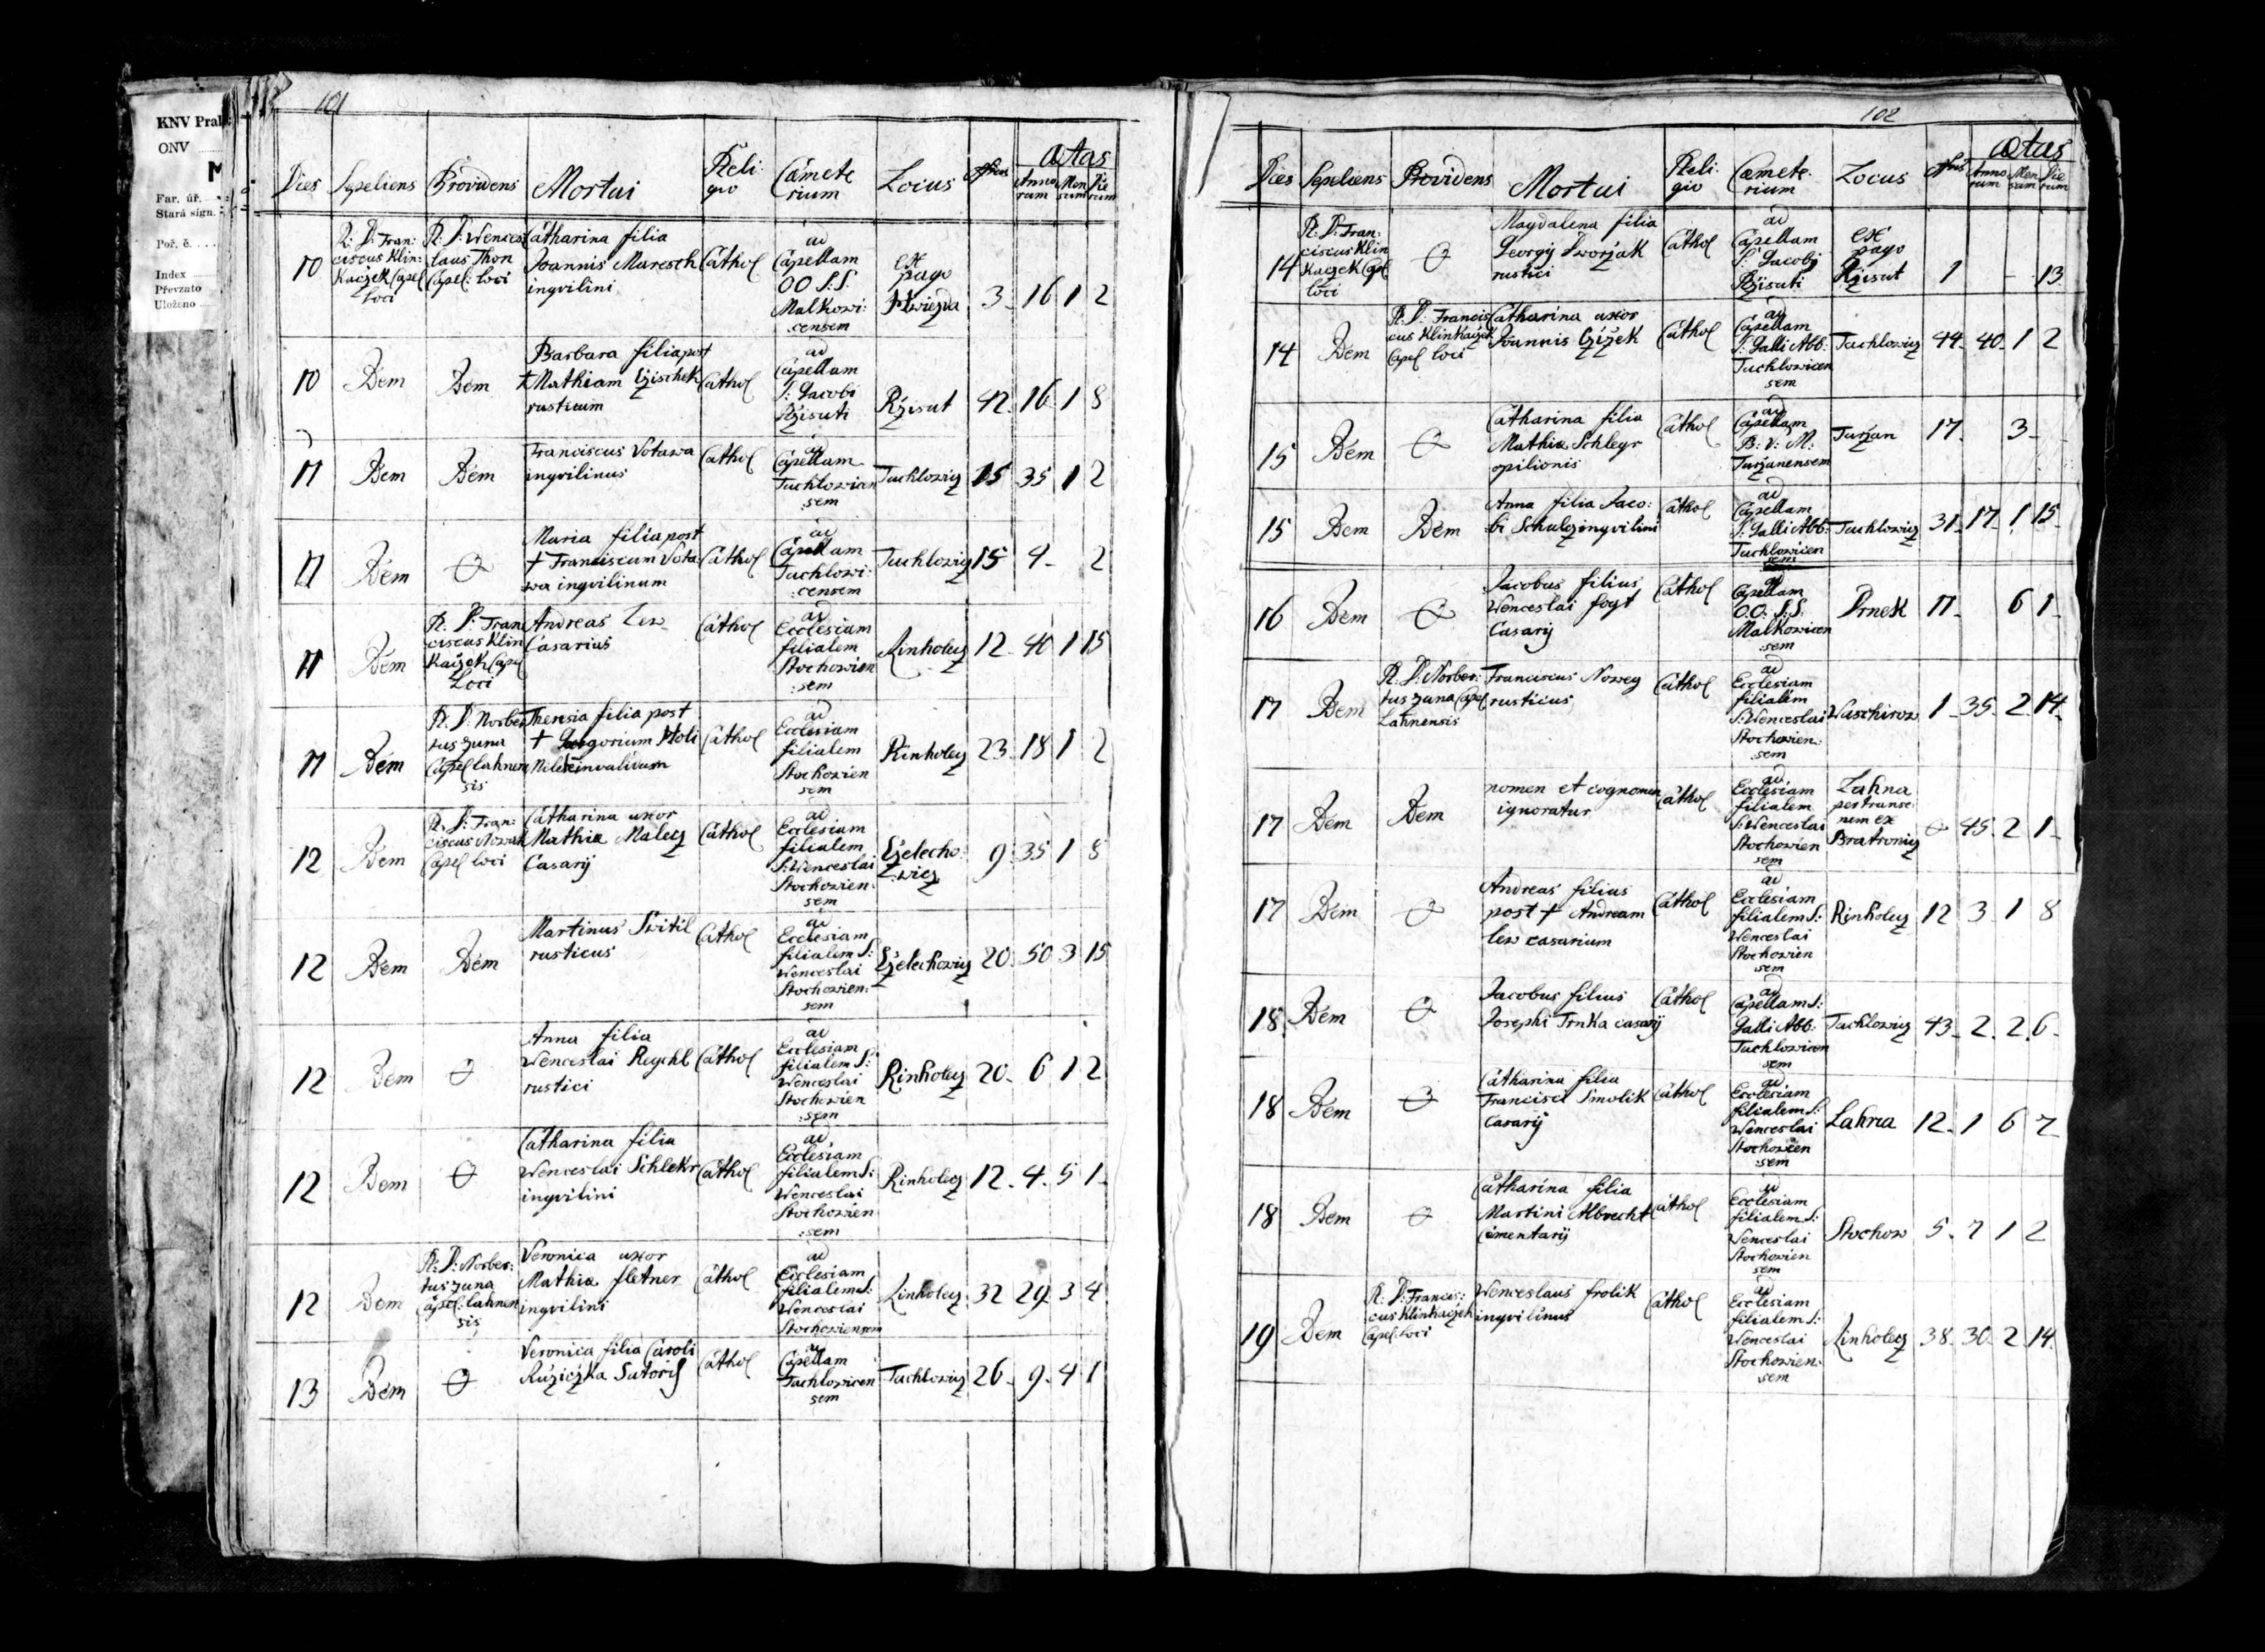 KNV Pra
ONV
Far. úř.
Stará sign.
Poř. č.
Index
Převzato
Uloženo
101
Dies Sepeliens Providens Mortui Religio Cæmeterium Locus Ætas Annorum Mensium Dierum
10 R: D: Franciscus Klinkaczek Capel Loci R: D: Wenceslaus Thon Capel: loci Catharina filia Joannis Maresch inqvilini Cathol ad Capellam OO S.S. Malkowicensem ex pago Hwiezda 3 16 1 2
10 Idem Idem Barbara filia post † Mathiam Czischek rusticum Cathol ad Capellam S: Jacobi Rzisuti Rzisut 42 16 1 8
11 Idem Idem Franciscus Votawa inqvilinus Cathol ad Capellam Tuchlowicensem Tuchlowicz 15 35 1 2
11 Idem Maria filia post † Franciscum Votawa inqvilinum Cathol ad Capellam Tuchlowi:censem Tuchlowicz 15 4 2
11 Idem R: D: Franciscus Klinkaczek Capel Loci Andreas Lew Casarius Cathol ad Ecclesiam filialem Stochowiensem Rinholecz 12 40 1 15
11 Idem R: D: Norbertus Zuna Capel lahnensis Theresia filia post † Gregorium Militem invalidum Cathol ad Ecclesiam filialem Stochowiensem Rinholecz 23 18 1 2
12 Idem R: D: Franciscus Nowak Capel loci Catharina uxor Mathiæ Malecz Casarij Cathol ad Ecclesiam filialem S: Wenceslai Stochowien:sem Czelechowicz 9 35 1 8
12 Idem Idem Martinus Switil rusticus Cathol ad Ecclesiam filialem S: Wenceslai Stochowien:sem Czelechowicz 20 50 3 15
12 Idem Anna filia Wenceslai Reychl rustici Cathol ad Ecclesiam filialem S: Wenceslai Stochowiensem Rinholecz 20 6 1 2
12 Idem Catharina filia Wenceslai Schlekr inqvilini Cathol ad Ecclesiam filialem S: Wenceslai Stochowiensem Rinholecz 12 4 5 1
12 Idem R: D: Norbertus Zuna Capel: lahnensis Veronica uxor Mathiæ fletner inqvilini Cathol ad Ecclesiam filialem S: Wenceslai Stochowiensem Rinholecz 32 29 3 4
13 Idem Veronica filia Caroli Ružiczka Sutoris Cathol ad Capellam Tuchlowicensem Tuchlowicz 26 9 4 1
102
Dies Sepeliens Providens Mortui Religio Cæmeterium Locus Ætas Annorum Mensium Dierum
14 R: D: Franciscus Klinkaczek Capel loci Magdalena filia Georgij Dworžak rustici Cathol ad Capellam S: Jacobj Rzisuti ex pago Rzisut 1 13
14 Idem R: D: Franciscus Klinkaczek Capel loci Catharina uxor Joannis Czižek Cathol ad Capellam S: Galli Abb: Tuchlowicensem Tuchlowicz 44 40 1 2
15 Idem Catharina filia Mathiæ Schleyr opilionis Cathol ad Capellam B: V: M: Turžanensem Turžan 17 3
15 Idem Idem Anna filia Jacobi Schulcz inqvilini Cathol ad Capellam S: Galli Abb: Tuchlowicensem Tuchlowicz 31 17 1 15
16 Idem Jacobus filius Wenceslai fogt Casarij Cathol ad Capellam O.O: S.S: Malkowicensem Drnek 11 6 1
17 Idem R: D: Norbertus Zuna Capel Lahnensis Franciscus Nowey rusticus Cathol ad Ecclesiam filialem S: Wenceslai Stochowien:sem Waschirow 1 35 2 14
17 Idem Idem nomen et cognomen ignoratur Cathol ad Ecclesiam filialem S: Wenceslai Stochowiensem Lahna per transennem ex Bratronicz 45 2 1
17 Idem Andreas filius post † Andream lew casarium Cathol ad Ecclesiam filialem S: Wenceslai Stochowiensem Rinholecz 12 3 1 8
18 Idem Jacobus filius Josephi Trnka casarij Cathol ad Capellam S: Galli Abb: Tuchlowicensem Tuchlowicz 43 2 2 6
18 Idem Catharina filia Francisci Smolik Casarij Cathol ad Ecclesiam filialem S: Wenceslai Stochowiensem Lahna 12 1 6 2
18 Idem Catharina filia Martini Albrecht Cæmentarij Cathol ad Ecclesiam filialem S: Wenceslai Stochowiensem Stochow 5 7 1 2
19 Idem R: D: Franciscus Klinkaczek Capel: loci Wenceslaus frolik inqvilinus Cathol ad Ecclesiam filialem S: Wenceslai Stochowien:sem Rinholecz 38 30 2 14